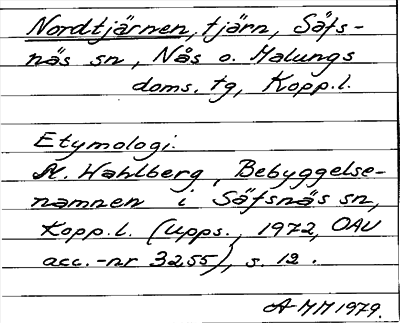 Nordtjärnen, tjärn, Säfs-
näs sn, Nås o. Malungs
doms. tg, Kopp.l.
Etymologi.
M. Wahlberg, Bebyggelse-
namnen i Säfsnäs sn,
Kopp.l. (Upps., 1972, OAU
acc.-nr 3255), s. 12.
AMM 1979.